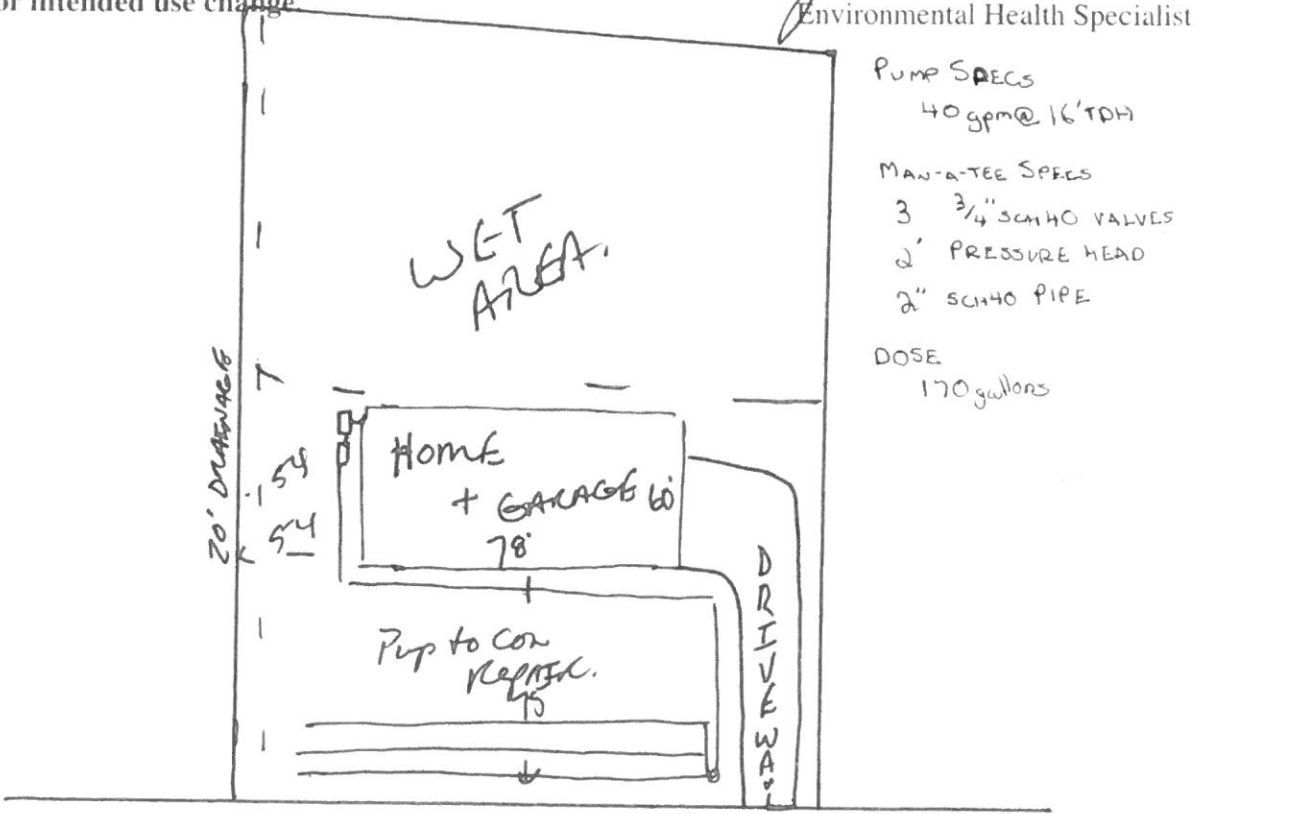 or intended use change.
Environmental Health Specialist
PUMP SPECS
40 gpm@ 16' TDH
MAN-A-TEE SPECS
3 3/4" SCH40 VALVES
2' PRESSURE HEAD
2" SCH40 PIPE
DOSE
170 gallons
WET
AREA.
20' DRAINAGE
54
54
HOME
+ GARAGE 60'
78'
Pup to Con
REPAIR.
75
DRIVEWAY